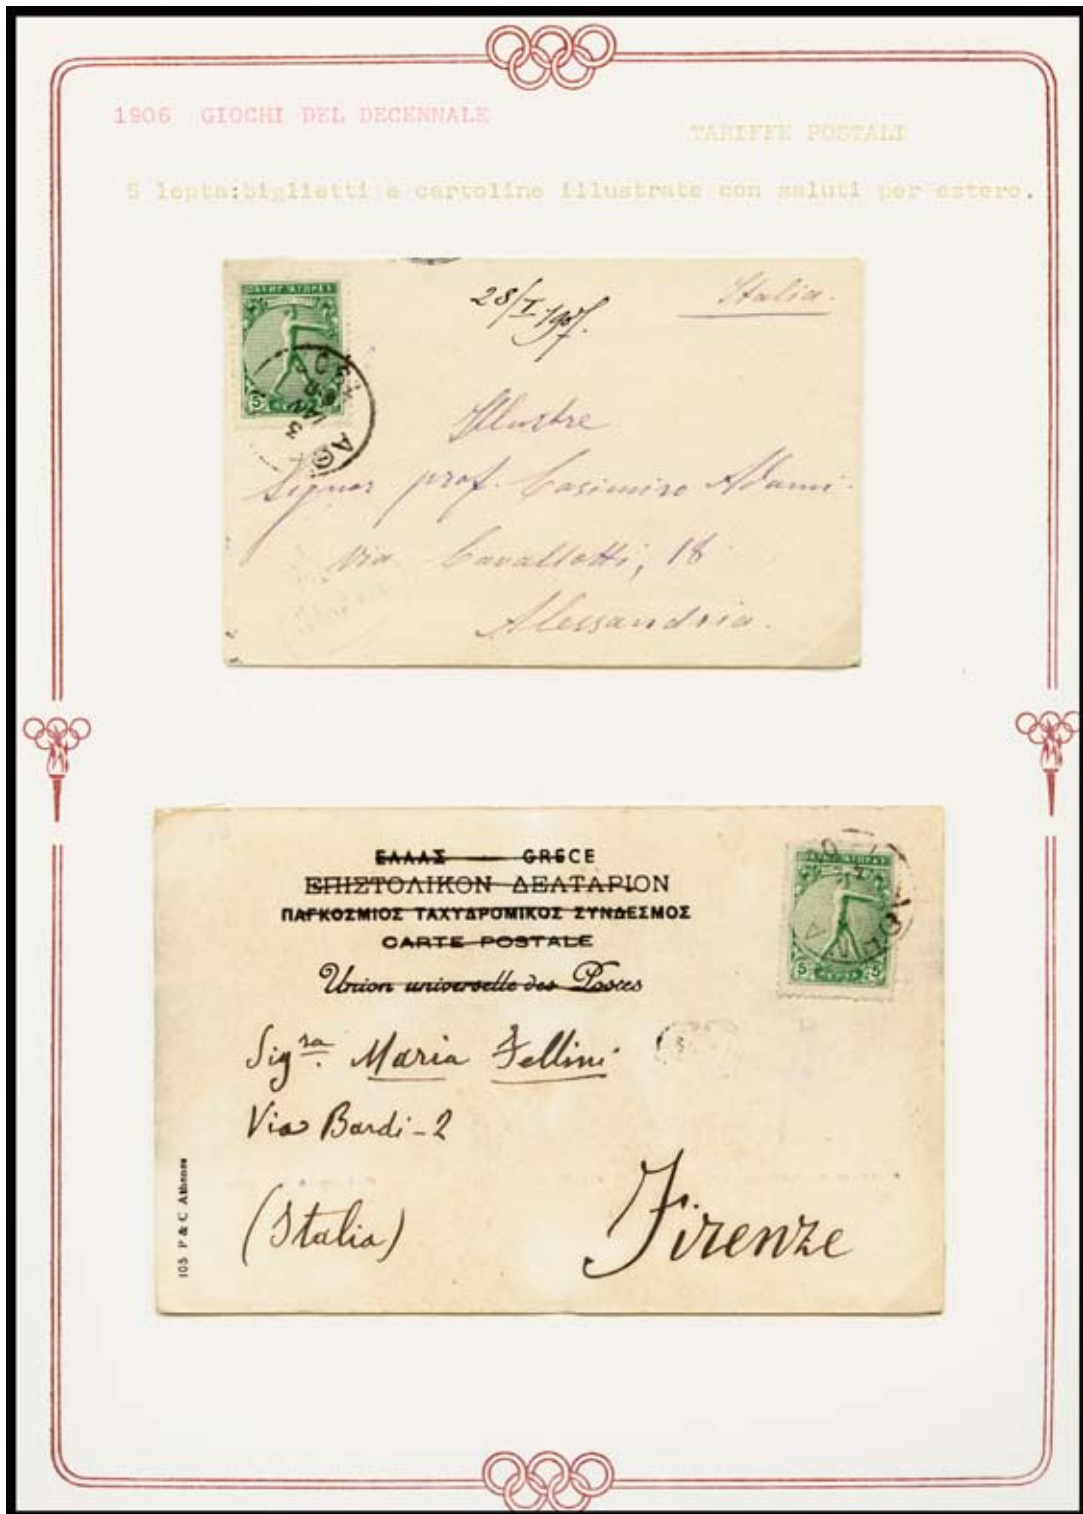 1906 GIOCHI DEL DECENNALE
TARIFFE POSTALI
5 lepta:biglietti e cartoline illustrate con saluti per estero.
28/I 1907.
Italia.
5
Illustre
Signor prof. Casimiro Adami.
via Cavallotti, 18
Alessandria.
ΕΛΛΑΣ — GRECE
ΕΠΙΣΤΟΛΙΚΟΝ ΔΕΛΤΑΡΙΟΝ
ΠΑΓΚΟΣΜΙΟΣ ΤΑΧΥΔΡΟΜΙΚΟΣ ΣΥΝΔΕΣΜΟΣ
CARTE POSTALE
Union universelle des Postes
5 5
Sigra. Maria Fellini
Via Bardi-2
(Italia)
Firenze
103 P & C Athenes